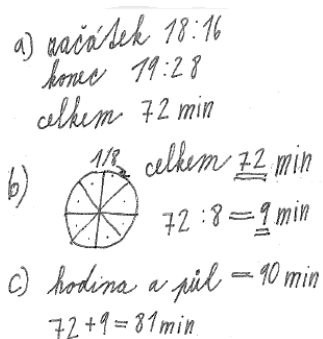 a) začátek 18:16
konec 19:28
celkem 72 min
b) 1/8 celkem 72 min
72 : 8 = 9 min
c) hodina a půl = 90 min
72 + 9 = 81 min